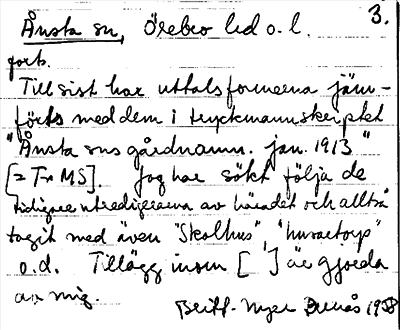 Ånsta sn, Örebro hd o. l. 3.
forts.
Till sist har uttalsformerna jäm-
förts med dem i tryckmanuskriptet
"Ånsta sns gårdnamn. jan. 1913"
[= Tr MS]. Jag har sökt följa de
tidigare utredigerarna av häradet och alltså
tagit med även "Skolhus", "husartorp"
o.d. Tillägg inom [ ] är gjorda
av mig.
Britt-Mger 1958